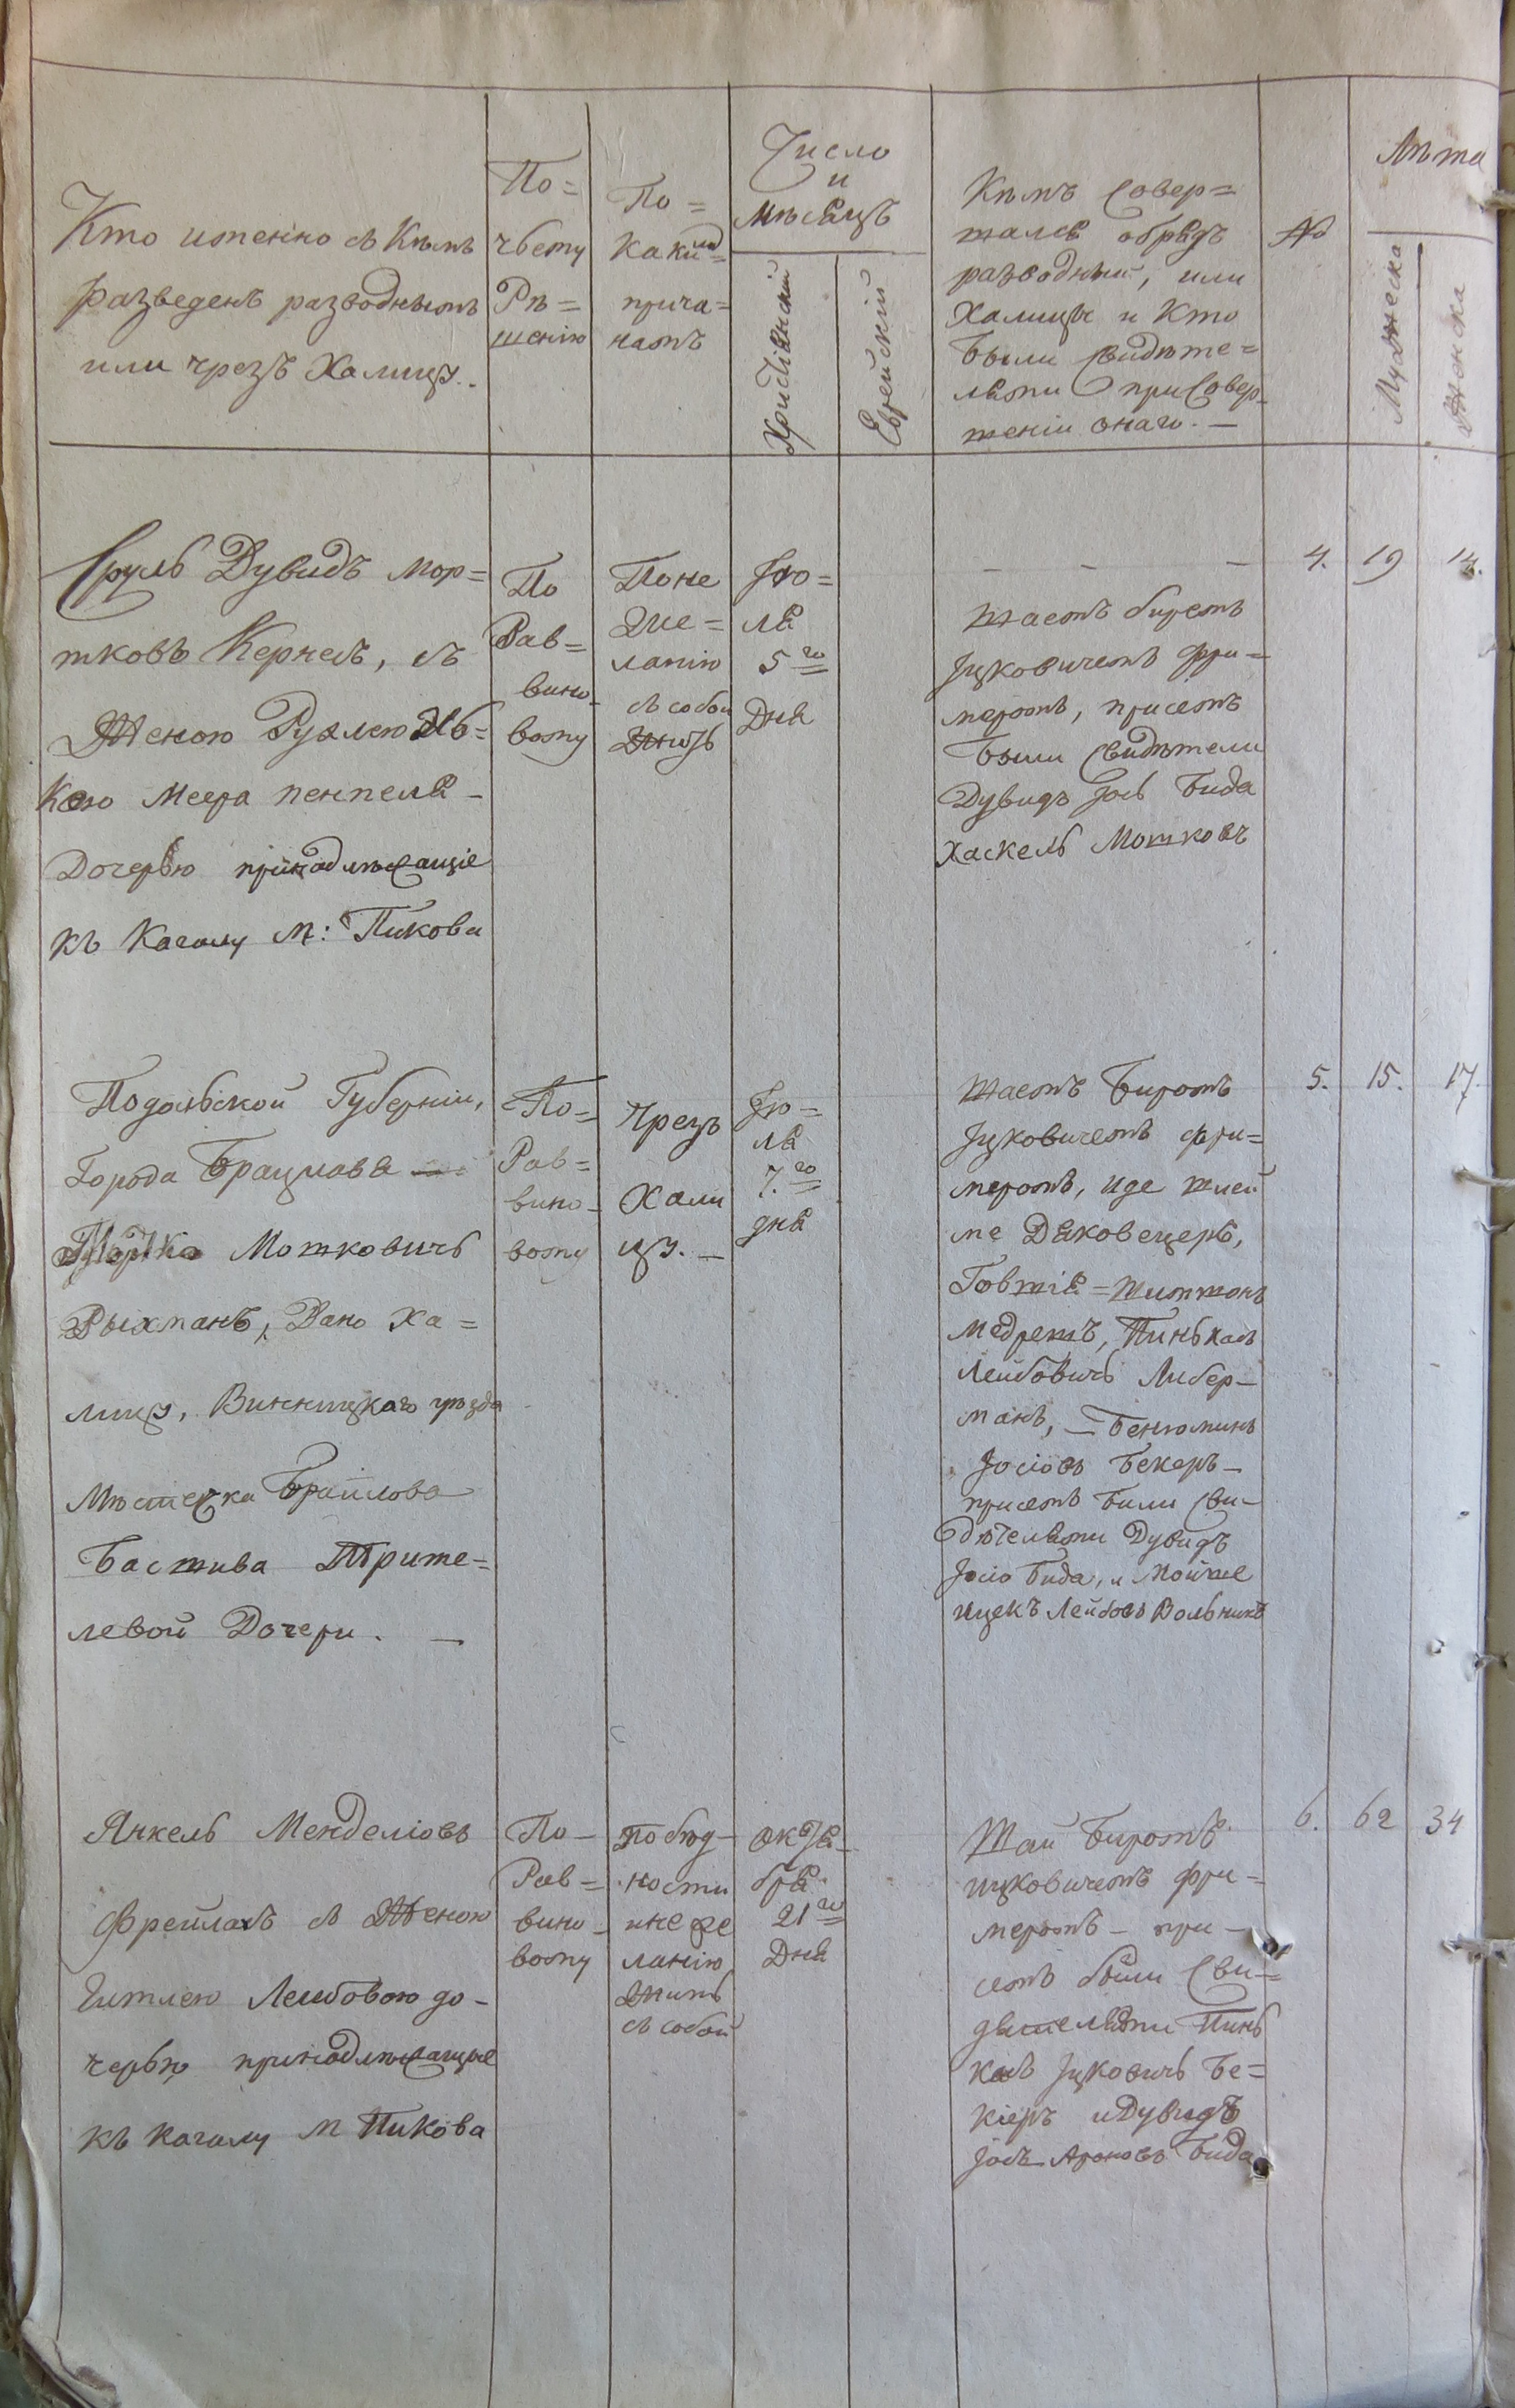 Кто именно съ Кѣмъ
разведенъ разводнымъ
или чрезъ Халицу.
По=
чьему
Рѣ=
шенію
По=
какимъ=
прича=
намъ
Число
и
мѣсяцъ
Христіянскій
Еврейскій
Кѣмъ Совер=
шался обрядъ
разводный, или
Халицы и Кто
были Свидѣте=
лями при Совер=
шеніи онаго. —
№
Лѣта
Мужеска
Женска
Сруль Дувидъ Мор=
тковъ Кернелъ, съ
Женою Рухлею Иц=
кою Меера
Дочерью принадлѣжащіе
къ Кагалу М: Пикова
По
Рав=
вино=
вому
По не
же=
ланію
съ собой
жить
Ію=
ля
5го
Дня
— — —
Шаемъ биремъ
Іцковичемъ Фри=
меромъ, присемъ
были Свидѣтели
Дувидъ Іось Бида
Хаскель Мошковъ
4.
19
18.
Подольской Губерніи,
Города Брацлава —
Мортко Мошковичъ
Рыхманъ, Дано Ха=
лицу, Винницкаго уѣзда
Мѣстечка Браилова
Басшива Шриме=
левой Дочери. —
По=
Рав=
вино=
вому
Чрезъ
Хали
цу. —
Ію=
ля
7.го
дня
Шаемъ Биромъ
Іцковичемъ Фри=
меромъ, Иде Шлей
ме Дяковецеръ,
Говшія = Шимшонъ
Медрешъ, Пинькасъ
Лейбовичъ Либер—
манъ, — Бенюминъ
Іосіовъ Бекеръ —
присемъ были Сви—
дѣтелями Дувидъ
Іосіо Бида, и Мойше
Ицекъ Лейбовъ Вольникъ
5.
15.
17.
Янкель Менделіовъ
Фрейлахъ съ Женою
Гитлею Лейбовою до—
черью принадлѣжащіе
къ Кагалу М Пикова
По—
Рав=
вино—
вому
По бѣд—
ности
и не же
ланію
жить
съ собой
Октя—
бря
21го
Дня
Шаи Биромъ
Ицковичемъ Фри=
меромъ — при —
семъ были Сви=
дѣтелями Пинь
касъ Іцковичъ Бе=
кіеръ и Дувидъ
Іось Ароновъ Бида
6.
62
34